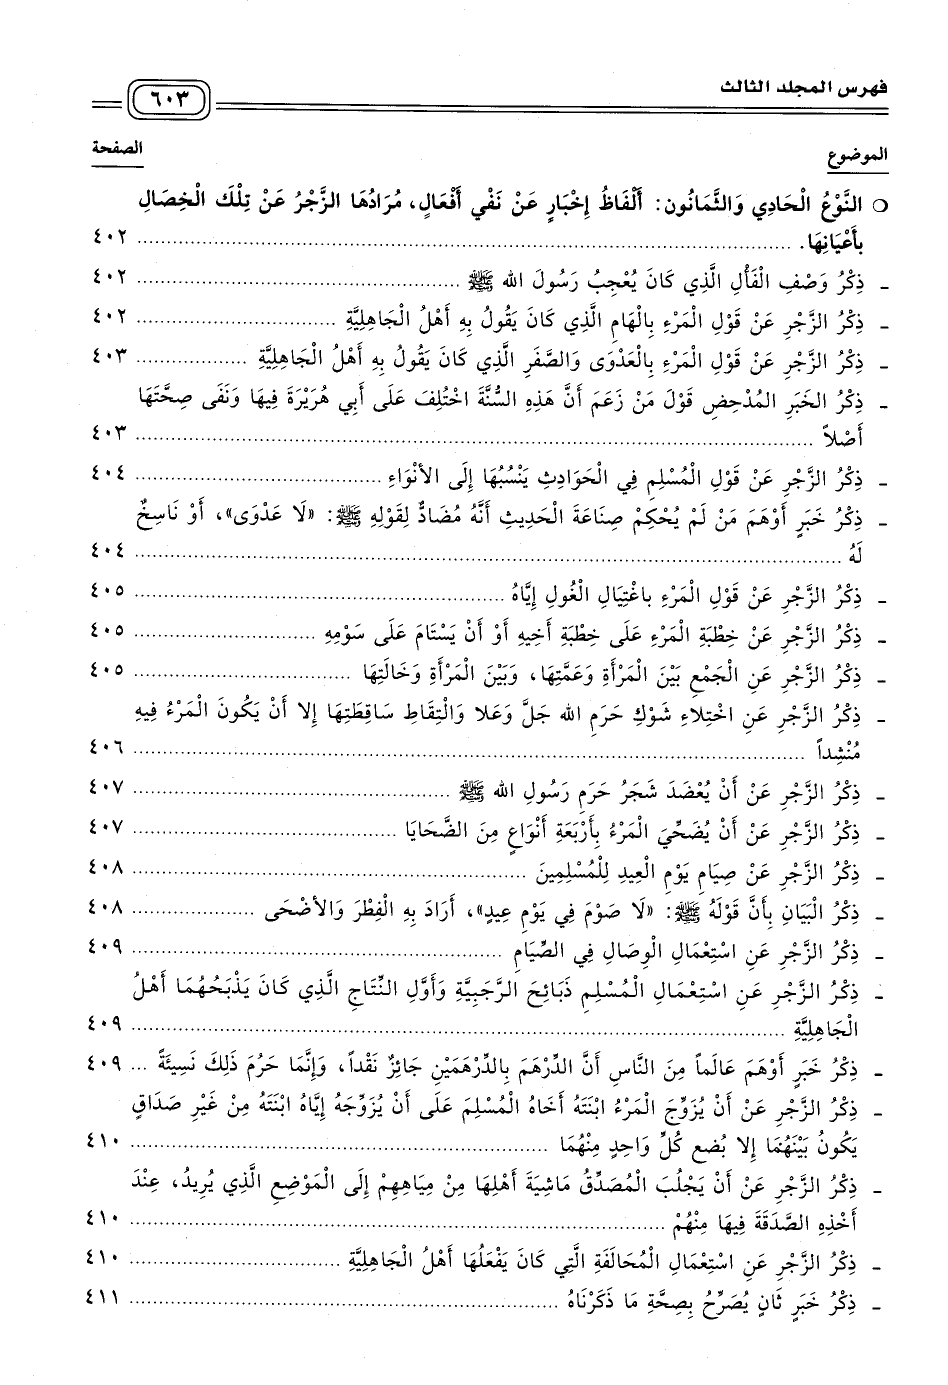 فهرس المجلد الثالث ٦٠٣
الموضوع الصفحة
○ النَّوْعُ الْحَادِي وَالثَّمَانُون: أَلْفَاظُ إِخْبَارٍ عَنْ نَفْي أَفْعَالٍ، مُرَادُهَا الزَّجْرُ عَنْ تِلْكَ الْخِصَالِ
بِأَعْيَانِهَا. ٤٠٢
- ذِكْرُ وَصْفِ الْفَأْلِ الَّذِي كَانَ يُعْجِبُ رَسُولَ الله ﷺ ٤٠٢
- ذِكْرُ الزَّجْرِ عَنْ قَوْلِ الْمَرْءِ بِالْهَامِ الَّذِي كَانَ يَقُولُ بِهِ أَهْلُ الْجَاهِلِيَّةِ ٤٠٢
- ذِكْرُ الزَّجْرِ عَنْ قَوْلِ الْمَرْءِ بِالْعَدْوَى وَالصَّفَرِ الَّذِي كَانَ يَقُولُ بِهِ أَهْلُ الْجَاهِلِيَّةِ ٤٠٣
- ذِكْرُ الخَبَرِ المُدْحِضِ قَوْلَ مَنْ زَعَمَ أَنَّ هَذِهِ السُّنَّةَ اخْتُلِفَ عَلَى أَبِي هُرَيْرَةَ فِيهَا وَنَفَى صِحَّتَهَا
أَصْلاً ٤٠٣
- ذِكْرُ الزَّجْرِ عَنْ قَوْلِ الْمُسْلِمِ فِي الْحَوَادِثِ يَنْسُبُهَا إِلَى الأَنْوَاءِ ٤٠٤
- ذِكْرُ خَبَرٍ أَوْهَمَ مَنْ لَمْ يُحْكِمْ صِنَاعَةَ الْحَدِيثِ أَنَّهُ مُضَادٌّ لِقَوْلِهِ ﷺ: «لَا عَدْوَى»، أَوْ نَاسِخٌ
لَهُ ٤٠٤
- ذِكْرُ الزَّجْرِ عَنْ قَوْلِ الْمَرْءِ بِاغْتِيَالِ الْغُولِ إِيَّاهُ ٤٠٥
- ذِكْرُ الزَّجْرِ عَنْ خِطْبَةِ الْمَرْءِ عَلَى خِطْبَةِ أَخِيهِ أَوْ أَنْ يَسْتَامَ عَلَى سَوْمِهِ ٤٠٥
- ذِكْرُ الزَّجْرِ عَنِ الْجَمْعِ بَيْنَ الْمَرْأَةِ وَعَمَّتِهَا، وَبَيْنَ الْمَرْأَةِ وَخَالَتِهَا ٤٠٥
- ذِكْرُ الزَّجْرِ عَنِ اخْتِلَاءِ شَوْكِ حَرَمِ الله جَلَّ وَعَلا وَالْتِقَاطِ سَاقِطَتِهَا إِلا أَنْ يَكُونَ الْمَرْءُ فِيهِ
مُنْشِداً ٤٠٦
- ذِكْرُ الزَّجْرِ عَنْ أَنْ يُعْضَدَ شَجَرُ حَرَمِ رَسُولِ الله ﷺ ٤٠٧
- ذِكْرُ الزَّجْرِ عَنْ أَنْ يُضَحِّيَ الْمَرْءُ بِأَرْبَعَةِ أَنْوَاعٍ مِنَ الضَّحَايَا ٤٠٧
- ذِكْرُ الزَّجْرِ عَنْ صِيَامِ يَوْمِ الْعِيدِ لِلْمُسْلِمِينَ ٤٠٨
- ذِكْرُ الْبَيَانِ بِأَنَّ قَوْلَهُ ﷺ: «لَا صَوْمَ فِي يَوْمِ عِيدٍ»، أَرَادَ بِهِ الْفِطْرَ وَالأَضْحَى ٤٠٨
- ذِكْرُ الزَّجْرِ عَنِ اسْتِعْمَالِ الْوِصَالِ فِي الصِّيَامِ ٤٠٩
- ذِكْرُ الزَّجْرِ عَنِ اسْتِعْمَالِ الْمُسْلِمِ ذَبَائِحَ الرَّجَبِيَّةِ وَأَوَّلِ النِّتَاجِ الَّذِي كَانَ يَذْبَحُهُمَا أَهْلُ
الْجَاهِلِيَّةِ ٤٠٩
- ذِكْرُ خَبَرٍ أَوْهَمَ عَالَماً مِنَ النَّاسِ أَنَّ الدِّرْهَمَ بِالدِّرْهَمَيْنِ جَائِزٌ نَقْداً، وَإِنَّمَا حَرُمَ ذَلِكَ نَسِيئَةً ٤٠٩
- ذِكْرُ الزَّجْرِ عَنْ أَنْ يُزَوِّجَ الْمَرْءُ ابْنَتَهُ أَخَاهُ الْمُسْلِمَ عَلَى أَنْ يُزَوِّجَهُ إِيَّاهُ ابْنَتَهُ مِنْ غَيْرِ صَدَاقٍ
يَكُونُ بَيْنَهُمَا إِلا بُضع كُلِّ وَاحِدٍ مِنْهُمَا ٤١٠
- ذِكْرُ الزَّجْرِ عَنْ أَنْ يَجْلُبَ الْمُصَدِّقُ مَاشِيَةَ أَهْلِهَا مِنْ مِيَاهِهِمْ إِلَى الْمَوْضِعِ الَّذِي يُرِيدُ، عِنْدَ
أَخْذِهِ الصَّدَقَةَ فِيهَا مِنْهُمْ ٤١٠
- ذِكْرُ الزَّجْرِ عَنِ اسْتِعْمَالِ الْمُحَالَفَةِ الَّتِي كَانَ يَفْعَلُهَا أَهْلُ الْجَاهِلِيَّةِ ٤١٠
- ذِكْرُ خَبَرٍ ثَانٍ يُصَرِّحُ بِصِحَّةِ مَا ذَكَرْنَاهُ ٤١١